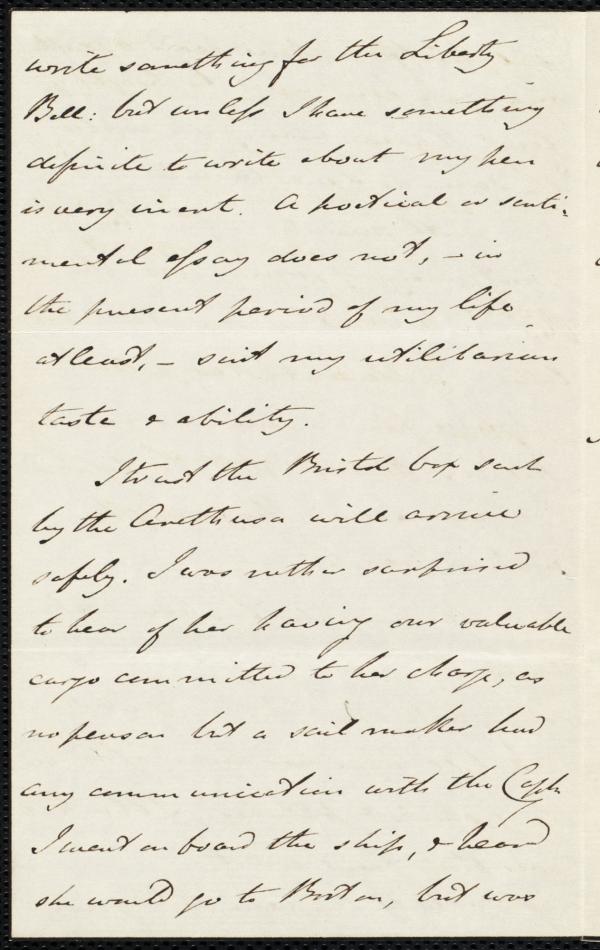 write something for the Liberty
Bell: but unless I have something
definite to write about my pen
is very inert. A poetical or senti-
mental essay does not, – in
the present period of my life
at least, – suit my utilitarian
taste & ability.
I trust the Bristol box sent
by the Arethusa will arrive
safely. I was rather surprised
to hear of her having our valuable
cargo committed to her charge, as
no person but a sail maker had
any communication with the Captn
I went on board the ship, & heard
she would go to Boston, but was